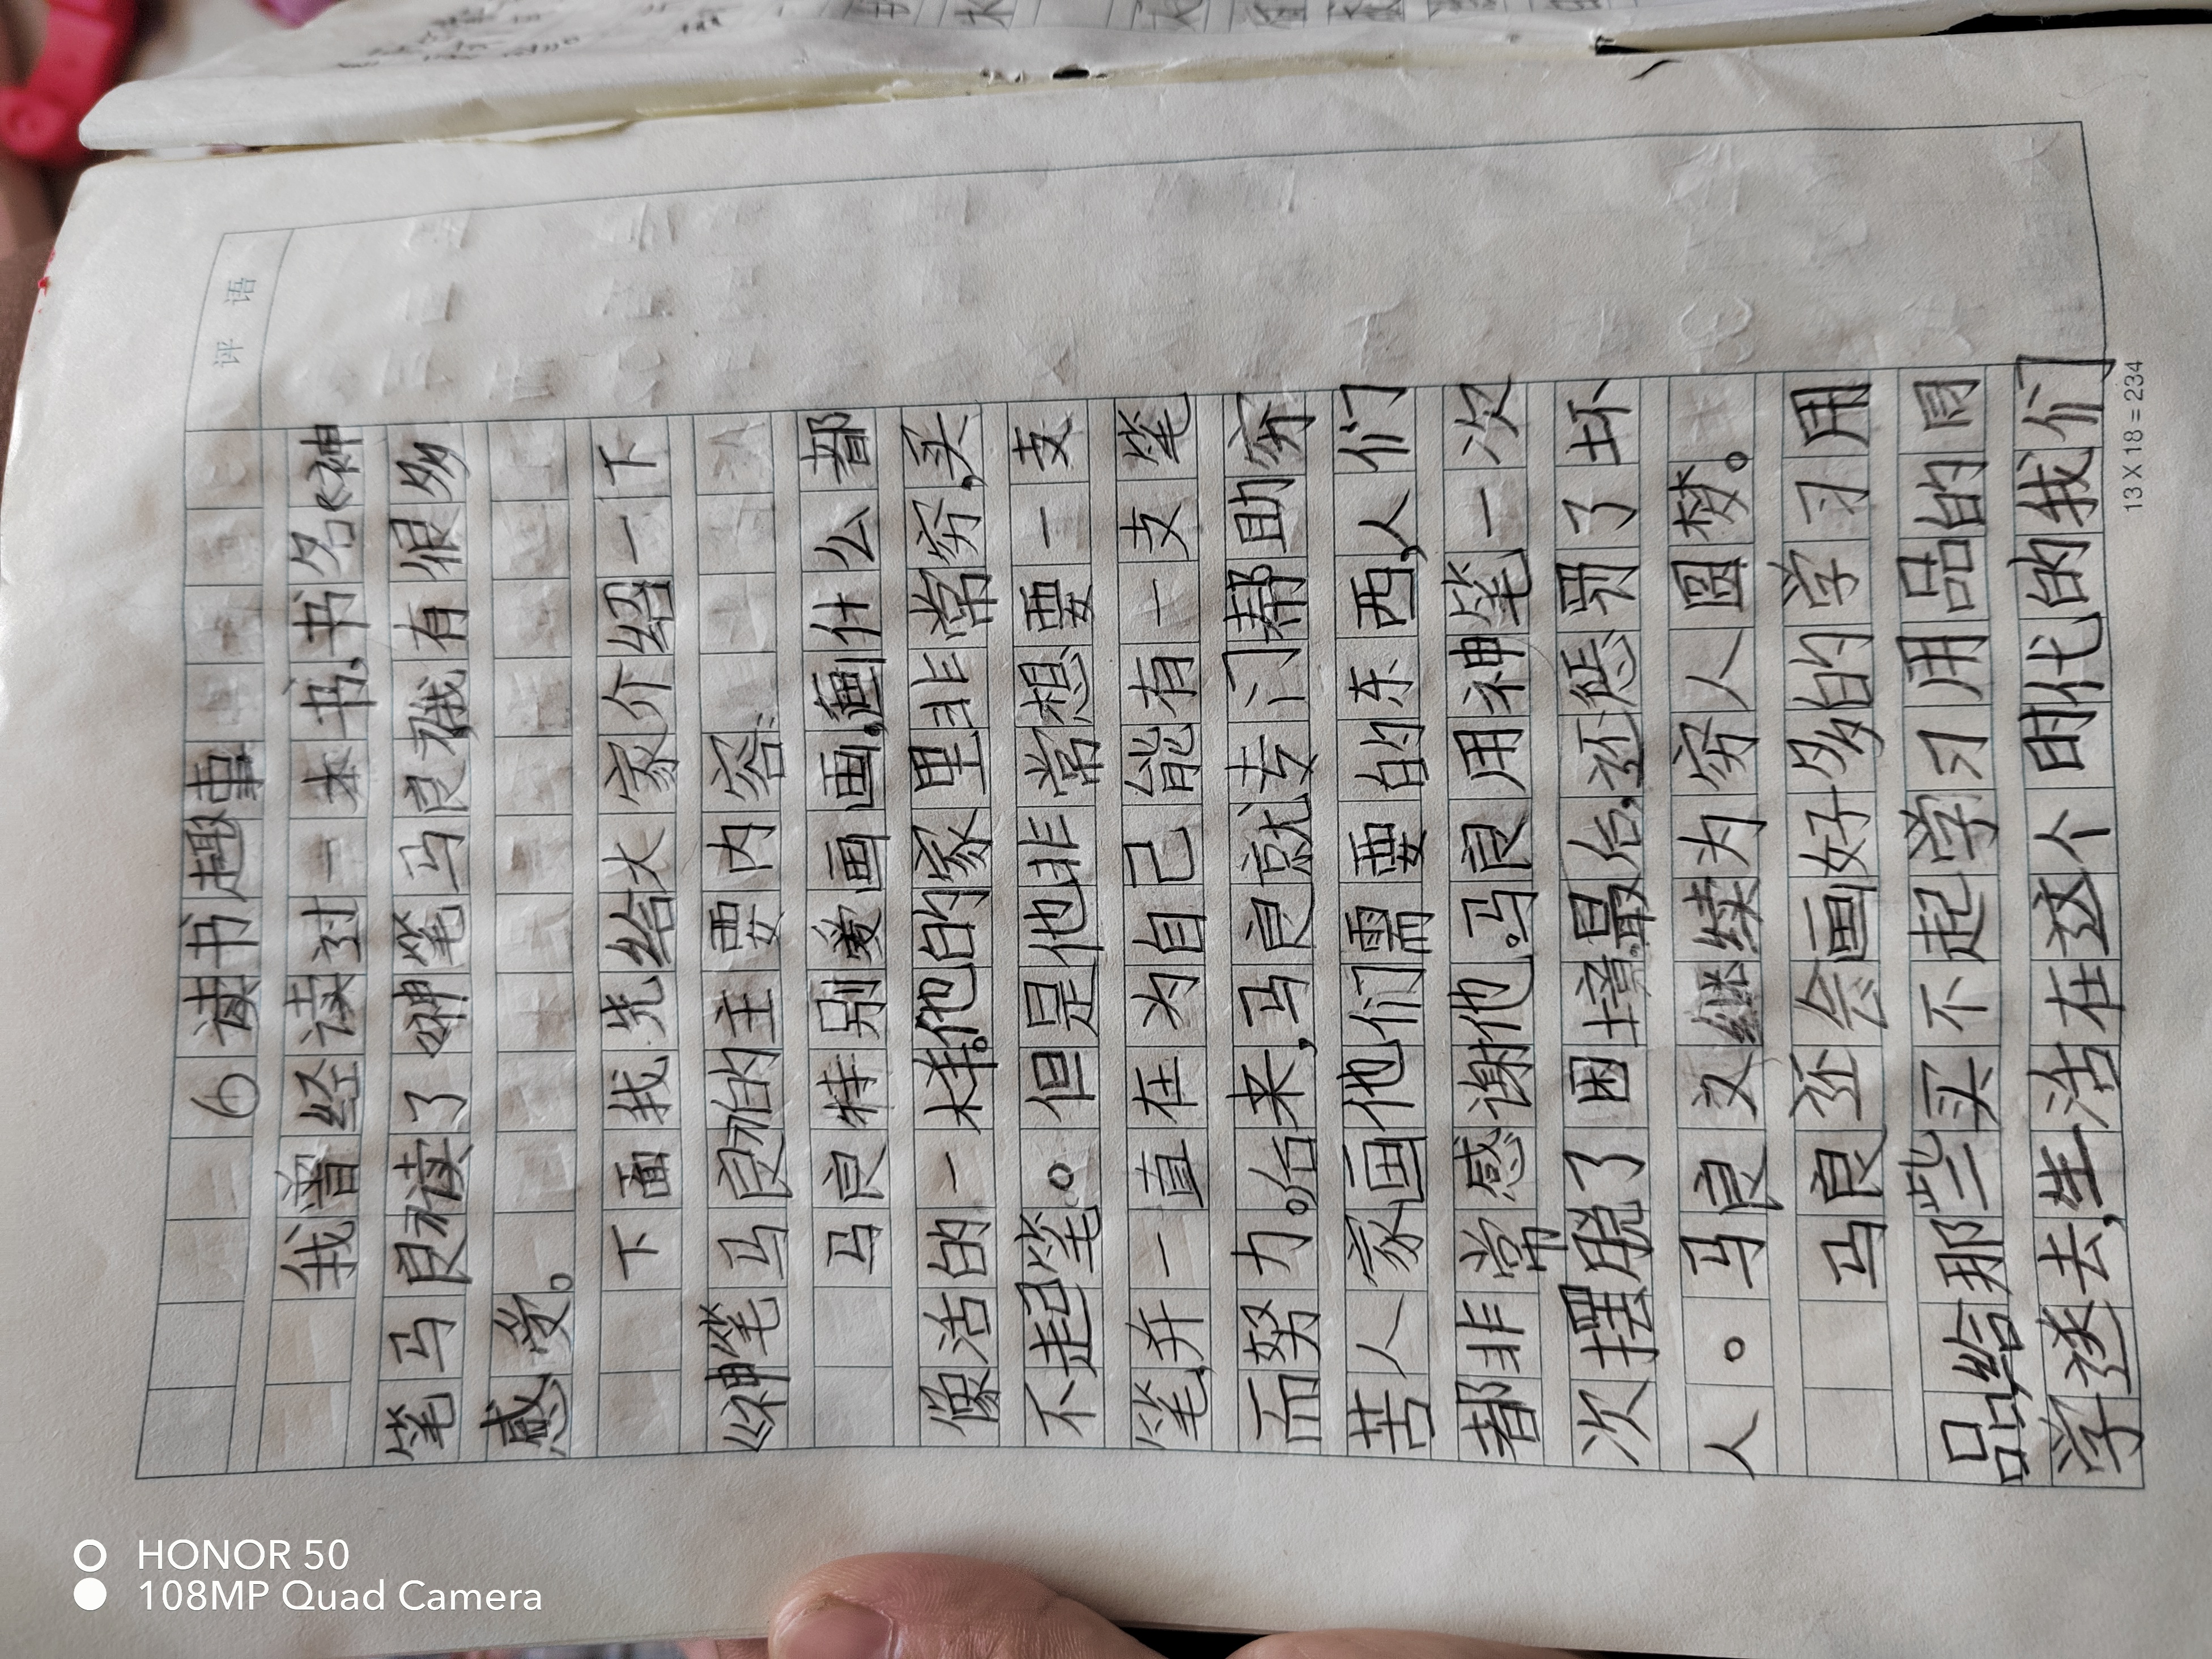 评 语
6 读书趣事
我曾经读过一本书,书名《神
笔马良》读了《神笔马良》我有很多
感受。
下面我先给大家介绍一下
《神笔马良》的主要内容:
马良特别爱画画,画什么都
像活的一样。他的家里非常穷,买
不起笔。但是他非常想要一支
笔,并一直在为自己能有一支笔
而努力。后来,马良就专门帮助穷
苦人家画他们需要的东西,人们
都非常感谢他。马良用神笔一次
次摆脱了困境。最后,还惩罚了坏
人。马良又继续为穷人圆梦。
马良还会画好多的学习用
品给那些买不起学习用品的同
学送去,生活在这个时代的我们
13X18=234
HONOR 50
108MP Quad Camera